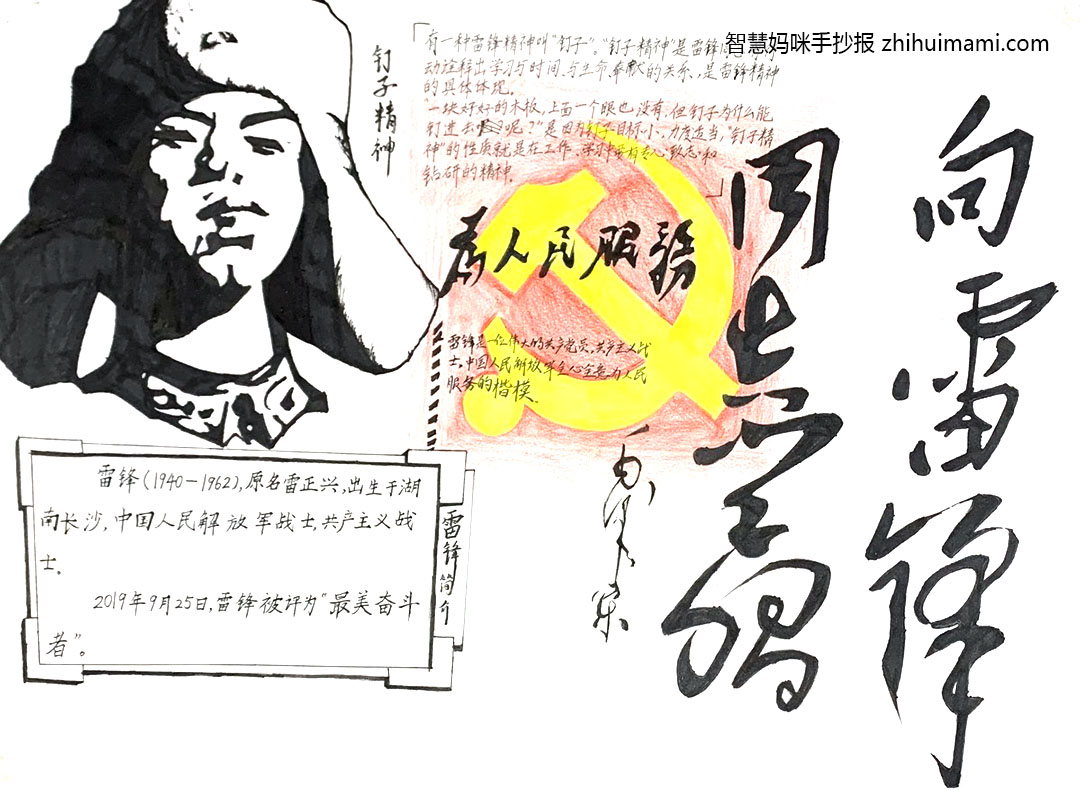 智慧妈咪手抄报 zhihuimami.com
向雷锋
同志学习
毛泽东
钉子精神
「有一种雷锋精神叫“钉子”。“钉子精神”是雷锋
动诠释出学习与时间、与生命、奉献的关系,是雷锋精神
的具体体现。
“一块好好的木板,上面一个眼也没有,但钉子为什么能
钉进去呢?”是因为钉子目标小,力度适当,“钉子精
神”的性质就是在工作、学习中要有专心致志和
钻研的精神。」
为人民服務
雷锋是一位伟大的共产党员,共产主义战
士,中国人民解放军全心全意为人民
服务的楷模。
雷锋简介
雷锋(1940-1962),原名雷正兴,出生于湖
南长沙,中国人民解放军战士,共产主义战
士。
2019年9月25日,雷锋被评为“最美奋斗
者”。